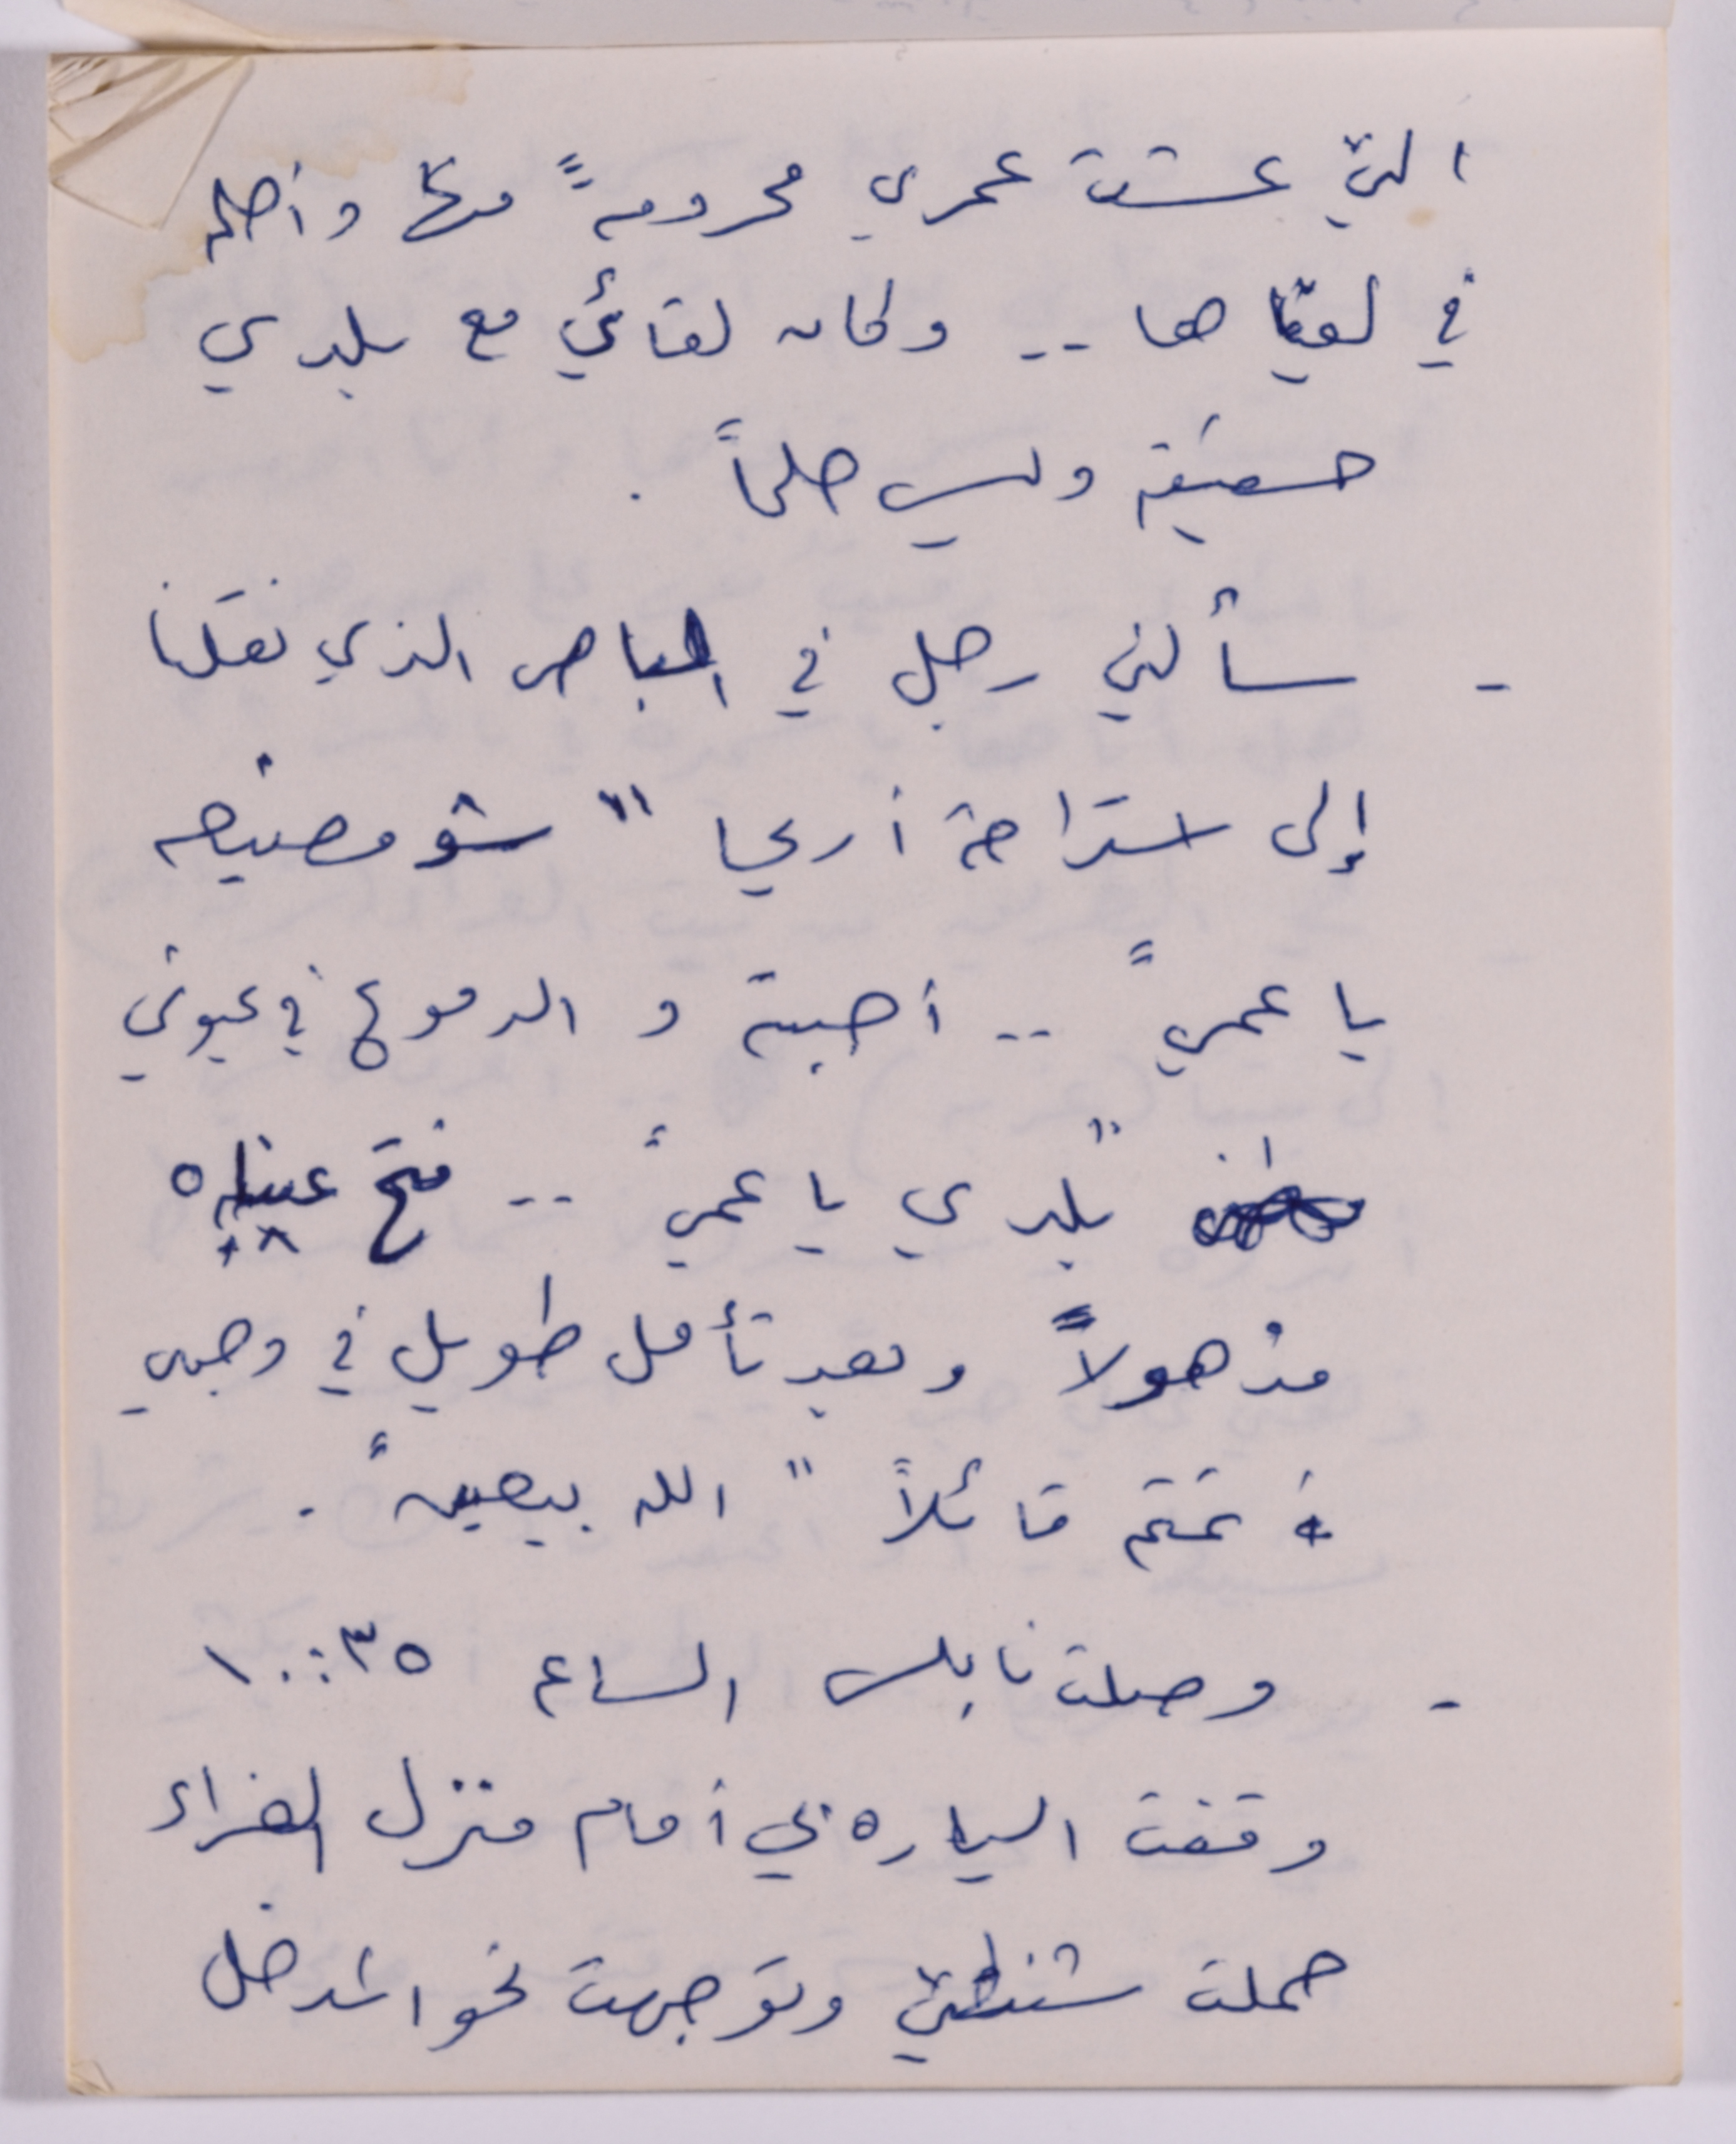 التي عشت عمري محرومةً منها وأحلم
في لقياها .. وكان لقائي مع بلدي
حقيقة وليس حلماً .
- سألني رجل في الباص الذي نقلنا
إلى استراحة أريحا " شو مضيعه
يا عمي " .. أجبته و الدموع في عيوني
" بلدي يا عمي " .. فتح عينيه
مذهولاً وبعد تأمل طويل في وجهي
تمتم قائلاً " الله بيعين " .
- وصلت نابلس الساعة ١٠:٣٥
وقفت السياره بي أمام منزل الفراء
حملت شنطتي وتوجهت نحو المدخل